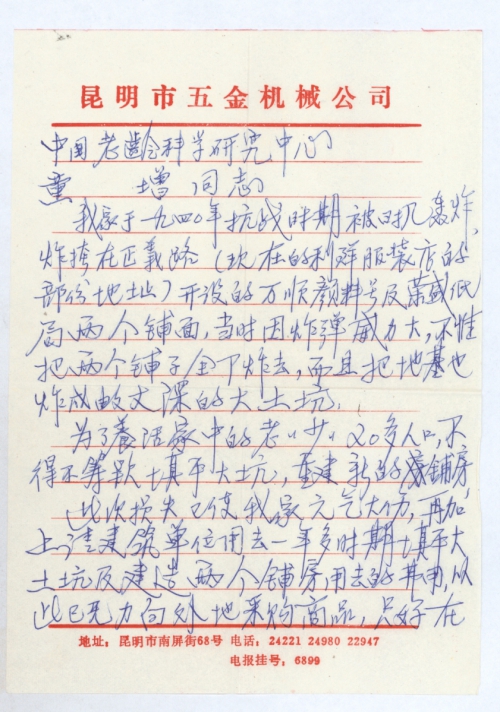 昆明市五金机械公司
中国老龄科学研究中心
童 增同志
我家于一九四〇年抗战时期被日机轰炸,
炸垮在正义路(现在的利群服装店的
部份地址)开设的万顺颜料号及荣盛纸
局两个铺面,当时因炸弹威力大,不惟
把两个铺子全部炸去,而且把地基也
炸成数丈深的大土坑.
为了养活家中的老小20多人口,不
得不筹款填平大坑,重建新的铺房,
此次损失已使我家元气大伤,再加
上请建筑单位用去一年多时期填平大
土坑及建造两个铺房用去的费用,从
此已无力向外地采购商品,只好在
地址:昆明市南屏街68号 电话:24221 24980 22947
电报挂号:6899